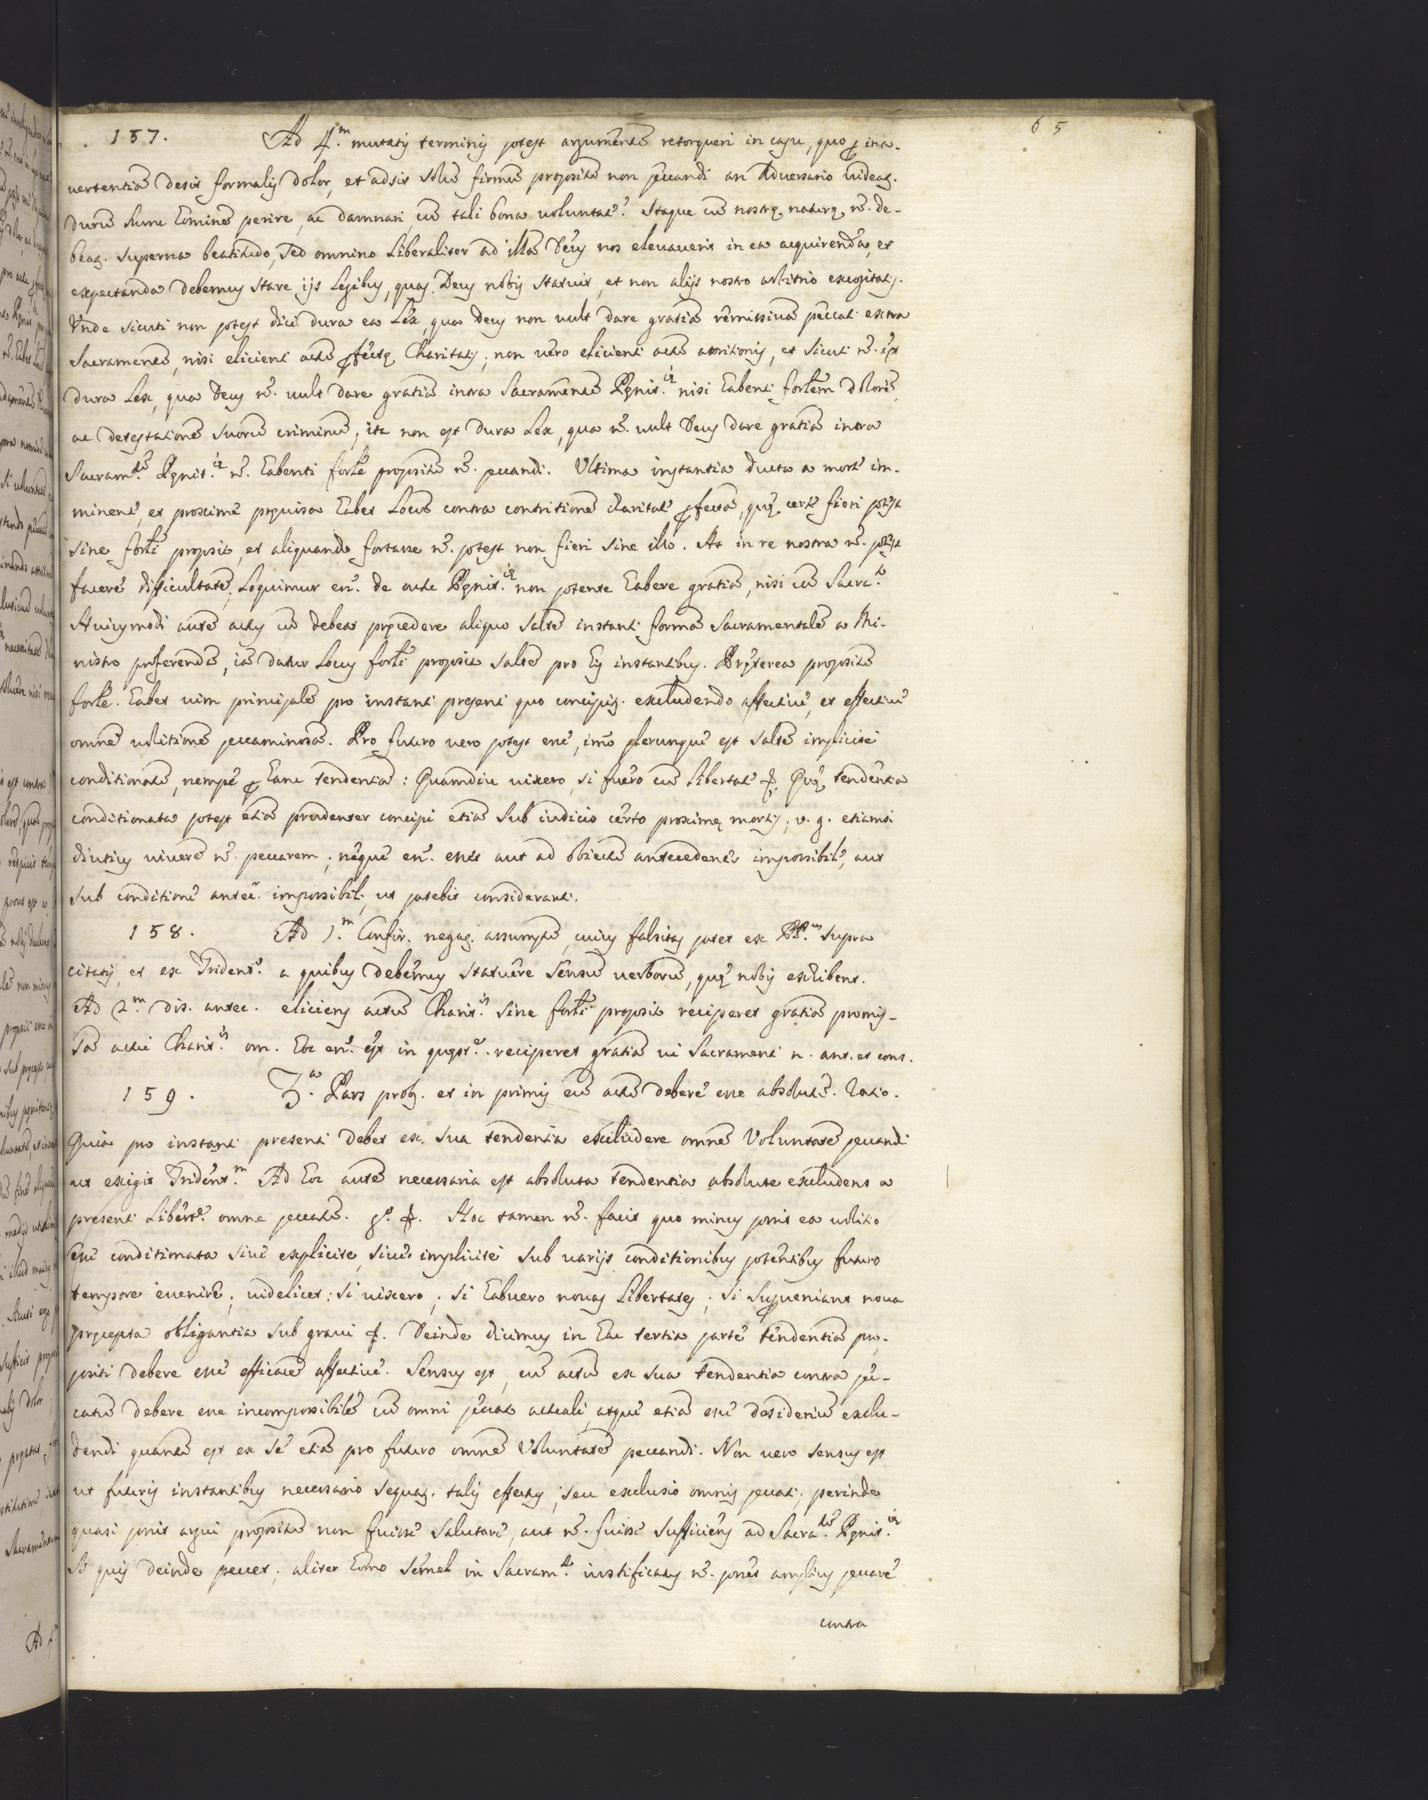 65
157. Ad 4.m mutatis terminis potest argumentũ retorqueri in casu, quo ꝑ ina-
uertentiã desit formalis dolor, et adsit solũ firmũ propositũ non peccandi an Aduersario uideat.
durũ hunc hominẽ perire, ac damnari cũ tali bona uoluntate? Itaque cũ nostrę naturę nõ de-
beat. superna beatitudo, sed omnino liberaliter ad illã Deus nos eleuauerit in ea acquirenda, et
expectanda debemus stare ijs legibus, quas Deus nobis statuit, et non alijs nostro arbitrio excogitatis.
Vnde sicuti non potest dici dura ea Lex, qua Deus non uult dare gratiã remissiuã peccati extra
Sacramentũ, nisi elicienti actũ ꝑfectę Charitatis, non uero elicienti actũ attritionis, et sicuti nõ est
dura Lex, qua Deus nõ uult dare gratiã intra Sacramentũ Pęnit.ię nisi habenti fortem dolorẽ,
ac detestationẽ suorũ criminũ, ita non est dura Lex, qua nõ uult Deus dare gratiã intra
Sacram.tũ Pęnit.ię nõ habenti forte propositũ nõ peccandi. Vltima instantia ducta a morte im-
minente, et proxime pręuisa habet locũ contra contritionẽ charitate ꝑfectã, quę certe fieri potest
sine forti proposito, et aliquando fortasse nõ potest non fieri sine illo. At in re nostra nõ potest
facere difficultatẽ, loquimur en. de actu Pęnit.ię non potente habere gratiã, nisi cũ Sacra.to
Huiusmodi autẽ actus cũ debeat pręcedere aliquo saltẽ instanti formã Sacramentalẽ a Mi-
nistro proferendã, iã datur locus forti proposito saltẽ pro his instantibus. Pręterea propositũ
forte habet uim principalẽ pro instanti presenti quo concipit. excludendo affectiuè, et effectiuè
omnẽ uolitionẽ peccaminosã. Pro futuro uero potest esse, imò plerunque est saltẽ implicitè
conditionatũ, nempe ꝑ hanc tendentiã: Quamdiu uixero, si fuero cũ libertate &. Quę tendentia
conditionata potest etiã prudenter concipi etiã sub iudicio certo proximę mortis; v. g. etiamsi
diutius uiuerẽ nõ peccarem; neque en. esset aut ad obiectũ antecedenter impossibile, aut
sub conditione antec. impossibili, ut patebit consideranti.
158. Ad 1.m Confir. negat. assumptũ, cuius falsitas patet ex PP.us supra
citatis, et ex Trident.o a quibus debemus statuere sensũ uerborũ, quę nobis exhibent.
Ad 2.m dis. antec. eliciens actũ Charit.is sine forti proposito reciperet gratiã promis-
sã actui Charit.is om. hoc en. est in quęst.e. reciperet gratiã ui Sacramenti n. ant. et cons.
159. 3.a Pars prob. et in primis eũ actũ debere esse absolutũ. Ratio.
Quia pro instanti presenti debet ex sua tendentia excludere omnẽ Voluntatẽ peccandi
ut exigit Trident.m Ad hoc autẽ necessaria est absoluta tendentia absolute excludens a
presenti libert.e omne peccatũ. g.o &. Hoc tamen nõ facit quo minus possit ea uolitio
esse conditionata siue explicite, siue implicite sub uarijs conditionibus potentibus futuro
tempore euenire; uidelicet: si uixero; si habuero nouas libertates; si superueniant noua
pręcepta obligantia sub graui &. Deinde dicimus in hac tertia parte tendentiã pro-
positi debere esse efficacẽ affectiuè. Sensus est, eũ actũ ex sua tendentia contra pec-
catũ debere esse incompossibilẽ cũ omni peccato actuali, atque etiã esse desideriũ exclu-
dendi quantũ est ex se etiã pro futuro omnẽ Voluntatẽ peccandi. Non uero sensus est
ut futuris instantibus necessario sequat. talis effectus, seu exclusio omnis peccati. perinde
quasi possit argui propositũ non fuisse salutare, aut nõ fuisse sufficiens ad Sacra.tũ Pęnit.ię
Si quis deinde peccet; aliter homo semel in Sacram.to iustificatus nõ posset amplius peccare
contra